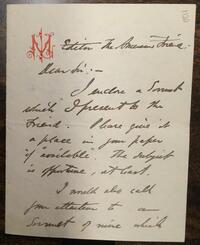 Editor The American Friend.
Dear Sir:-
I enclose a Sonnet
which I present to the
Friend. Please give it
a place in your paper
if "available". The subject
is opportune, at least.
I would also call
your attention to a
Sonnet of mine which